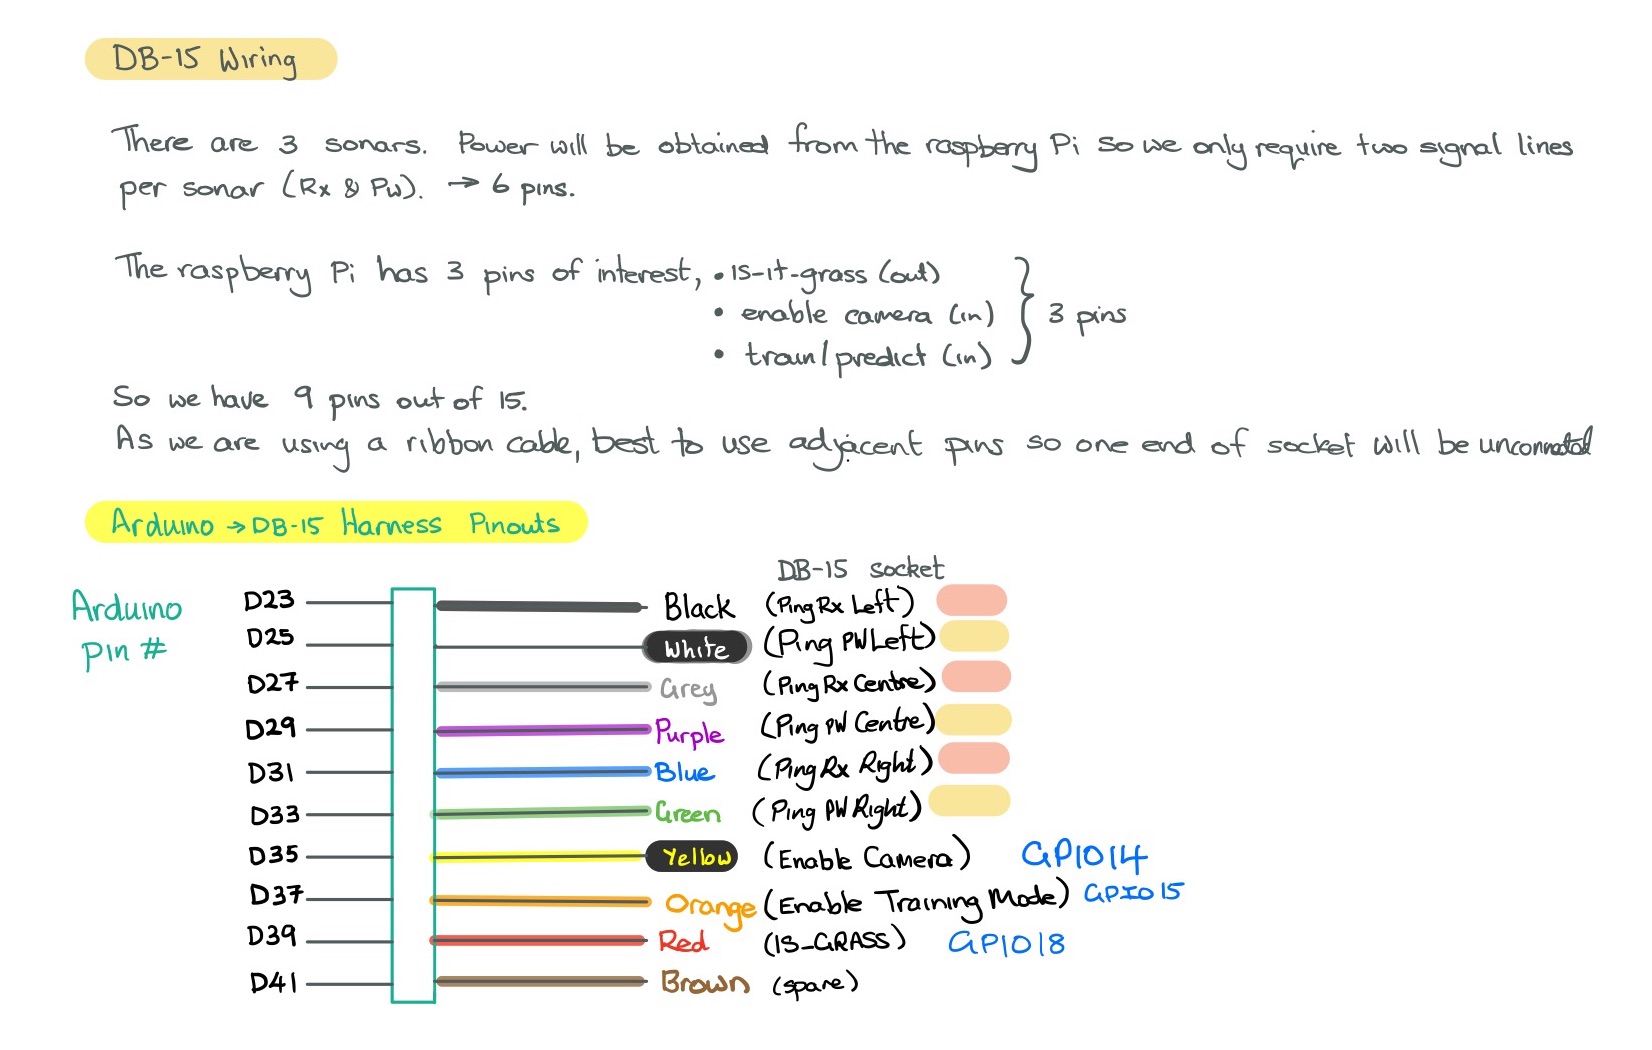 DB-15 Wiring
There are 3 sonars. Power will be obtained from the raspberry Pi so we only require two signal lines
per sonar (Rx & PW). → 6 pins.
The raspberry Pi has 3 pins of interest, • IS-it-grass (out)
• enable camera (in)
• train/predict (in)
3 pins
So we have 9 pins out of 15.
As we are using a ribbon cable, best to use adjacent pins so one end of socket will be unconnected
Arduino → DB-15 Harness Pinouts
DB-15 socket
Arduino Pin #
D23 Black (Ping Rx Left)
D25 White (Ping PW Left)
D27 Grey (Ping Rx Centre)
D29 Purple (Ping PW Centre)
D31 Blue (Ping Rx Right)
D33 Green (Ping PW Right)
D35 Yellow (Enable Camera) GPIO14
D37 Orange (Enable Training Mode) GPIO15
D39 Red (IS_GRASS) GPIO18
D41 Brown (spare)